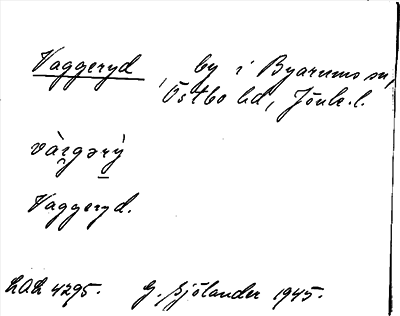 Vaggeryd, by i Byarums sn,
Östbo hd, Jönk. l.
vàrgərẏ
Vaggeryd.
LAL 4295. G. Sjölander 1945.